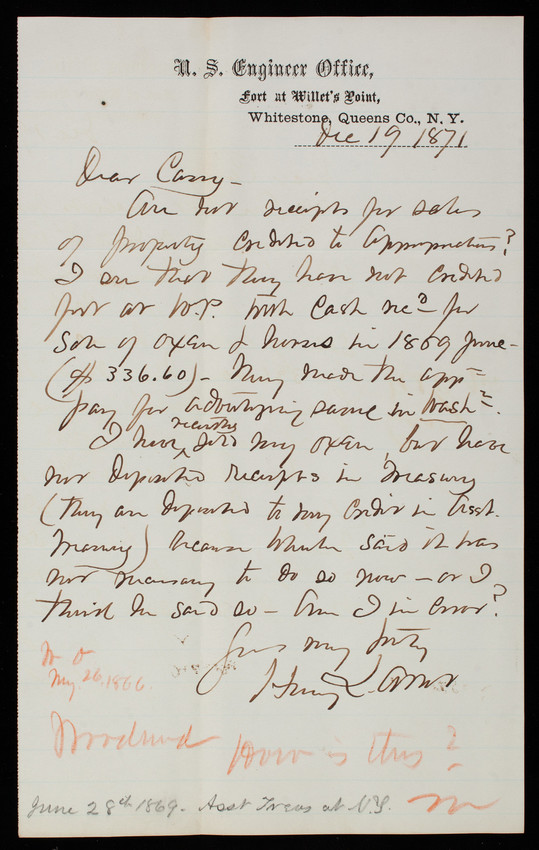 U. S. Engineer Office,
Fort at Willet's Point,
Whitestone, Queens Co., N. Y.
Dec 19 1871
Dear Casey -
Are not receipts for sales
of property credited to appropriations?
I see that they have not credited
fort at W.P. with Cash recd for
Sale of oxen & horses in 1869 June -
($ 336.60) - They made the appn
pay for advertising same in Washn.
I have recently sold my oxen, but have
not deposited receipts in Treasury
(they are deposited to my credit in Asst.
Treasury) because Wheeler said it was
not necessary to do so now - or I
think he said so - Am I in error?
Yrs very truly
Henry L. Abbot
W D
May 26, 1866.
Woodruff How is this?
June 28th 1869. Asst Treas at N.Y.